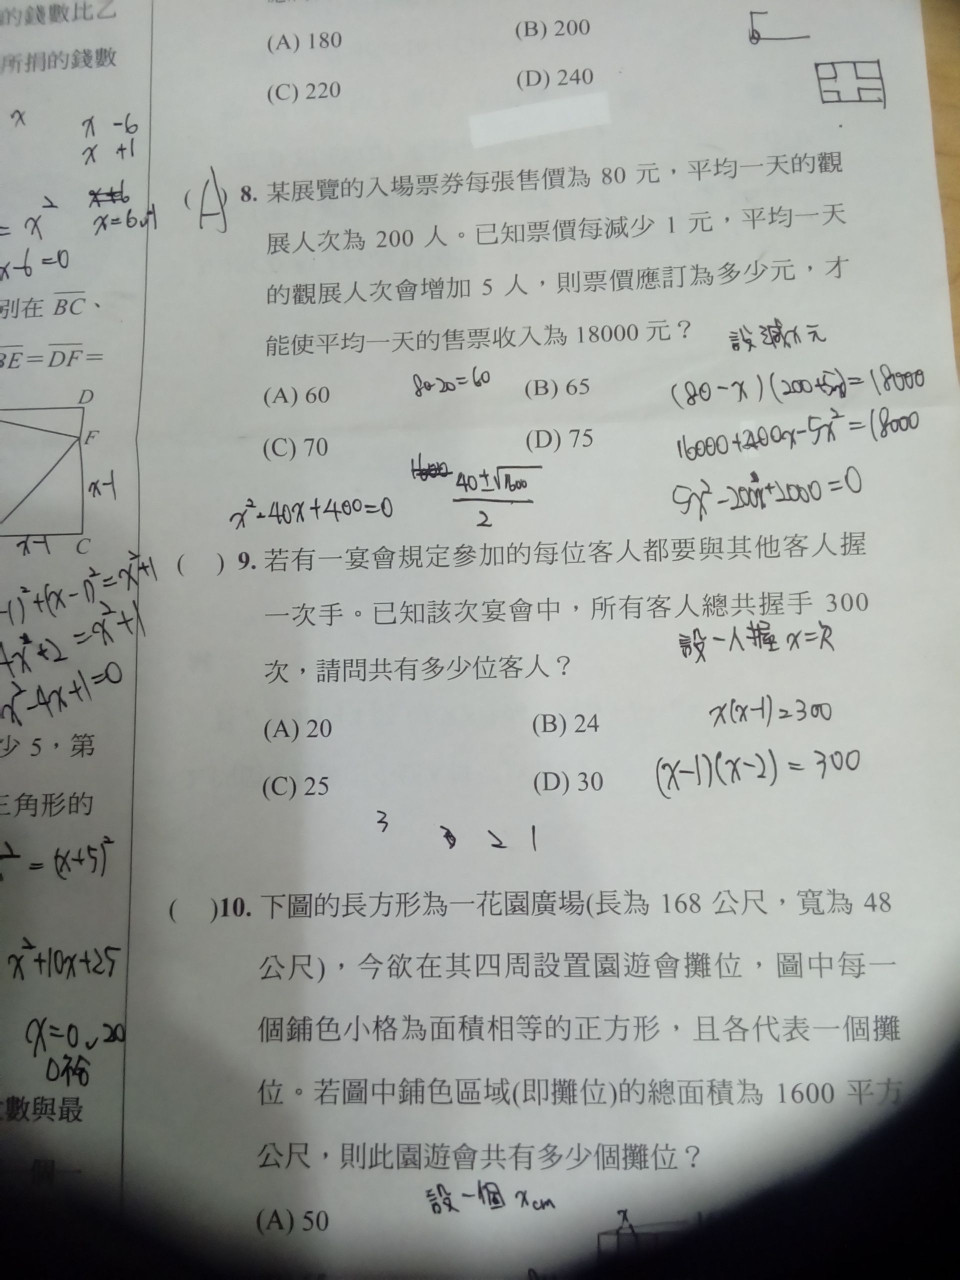 的錢數比乙
所捐的錢數
x
x -6
x +1
x=6
= x²
x-6=0
別在 BC、
BE=DF=
D
F
x-1
x-1 C
-1)²+(x-1)²=x²+1
=x²+1
x²-4x+1=0
少 5，第
三角形的
= (x+5)²
x²+10x+25
x=0、20
數與最
(A) 180 (B) 200
(C) 220 (D) 240
(A) 8. 某展覽的入場票券每張售價為 80 元，平均一天的觀
展人次為 200 人。已知票價每減少 1 元，平均一天
的觀展人次會增加 5 人，則票價應訂為多少元，才
能使平均一天的售票收入為 18000 元？
設減x元
(A) 60 80-20=60 (B) 65
(80-x)(200+5x)=18000
16000+200x-5x²=18000
(C) 70 (D) 75
5x²-200x+2000=0
x²-40x+400=0
40±√1600
2
( ) 9. 若有一宴會規定參加的每位客人都要與其他客人握
一次手。已知該次宴會中，所有客人總共握手 300
次，請問共有多少位客人？
設一人握x=次
(A) 20 (B) 24
x(x-1)=300
(C) 25 (D) 30
(x-1)(x-2)=300
3 2 1
( )10. 下圖的長方形為一花園廣場(長為 168 公尺，寬為 48
公尺)，今欲在其四周設置園遊會攤位，圖中每一
個鋪色小格為面積相等的正方形，且各代表一個攤
位。若圖中鋪色區域(即攤位)的總面積為 1600 平方
公尺，則此園遊會共有多少個攤位？
設一個 xcm
(A) 50
x